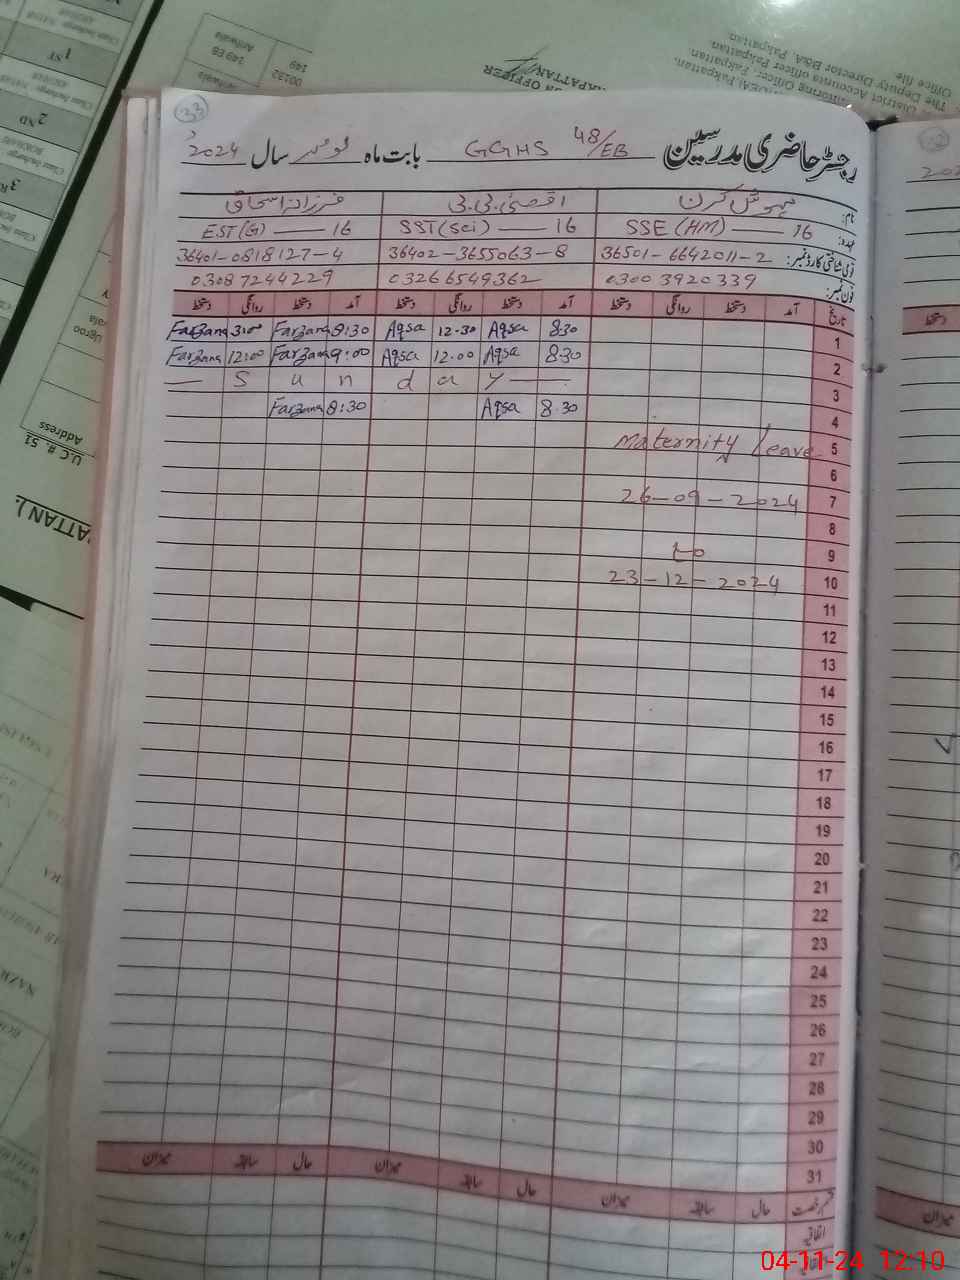 33
رجسٹر حاضری مدرسین GGHS 48/EB بابت ماہ نومبر سال 2024ء
نام: مہوش کرن اقصیٰ بی بی فرزانہ اسحاق
عہدہ: SSE (HM) — 16 SST (Sci) — 16 EST (G) — 16
آئی ڈی شناختی کارڈ نمبر: 36501-6642011-2 36402-3655063-8 36401-0818127-4
فون نمبر: 0300 3920339 03266549362 03087244229
تاریخ آمد دستخط روانگی دستخط آمد دستخط روانگی دستخط آمد دستخط روانگی دستخط
1 8:30 Aqsa 12.30 Aqsa 8:30 Farzana 3:00 Farzana
2 8:30 Aqsa 12.00 Aqsa 9:00 Farzana 12:00 Farzana
3 — S u n d a y —
4 8.30 Aqsa 8:30 Farzana
5 Maternity Leave
6
7 26-09-2024
8
9
10 23-12-2024
11
12
13
14
15
16
17
18
19
20
21
22
23
24
25
26
27
28
29
30
31
قسم رخصت حال سابقہ میزان حال سابقہ میزان حال سابقہ میزان
اتفاقیہ
OFFICER
PAKPATTAN
District Accounts officer, Pakpattan.
The Deputy Director B&A, Pakpattan.
Office file
00132
149
149 EB
Arifwala
1ST
2ND
U.C #. 51
Address
04-11-24 12:10